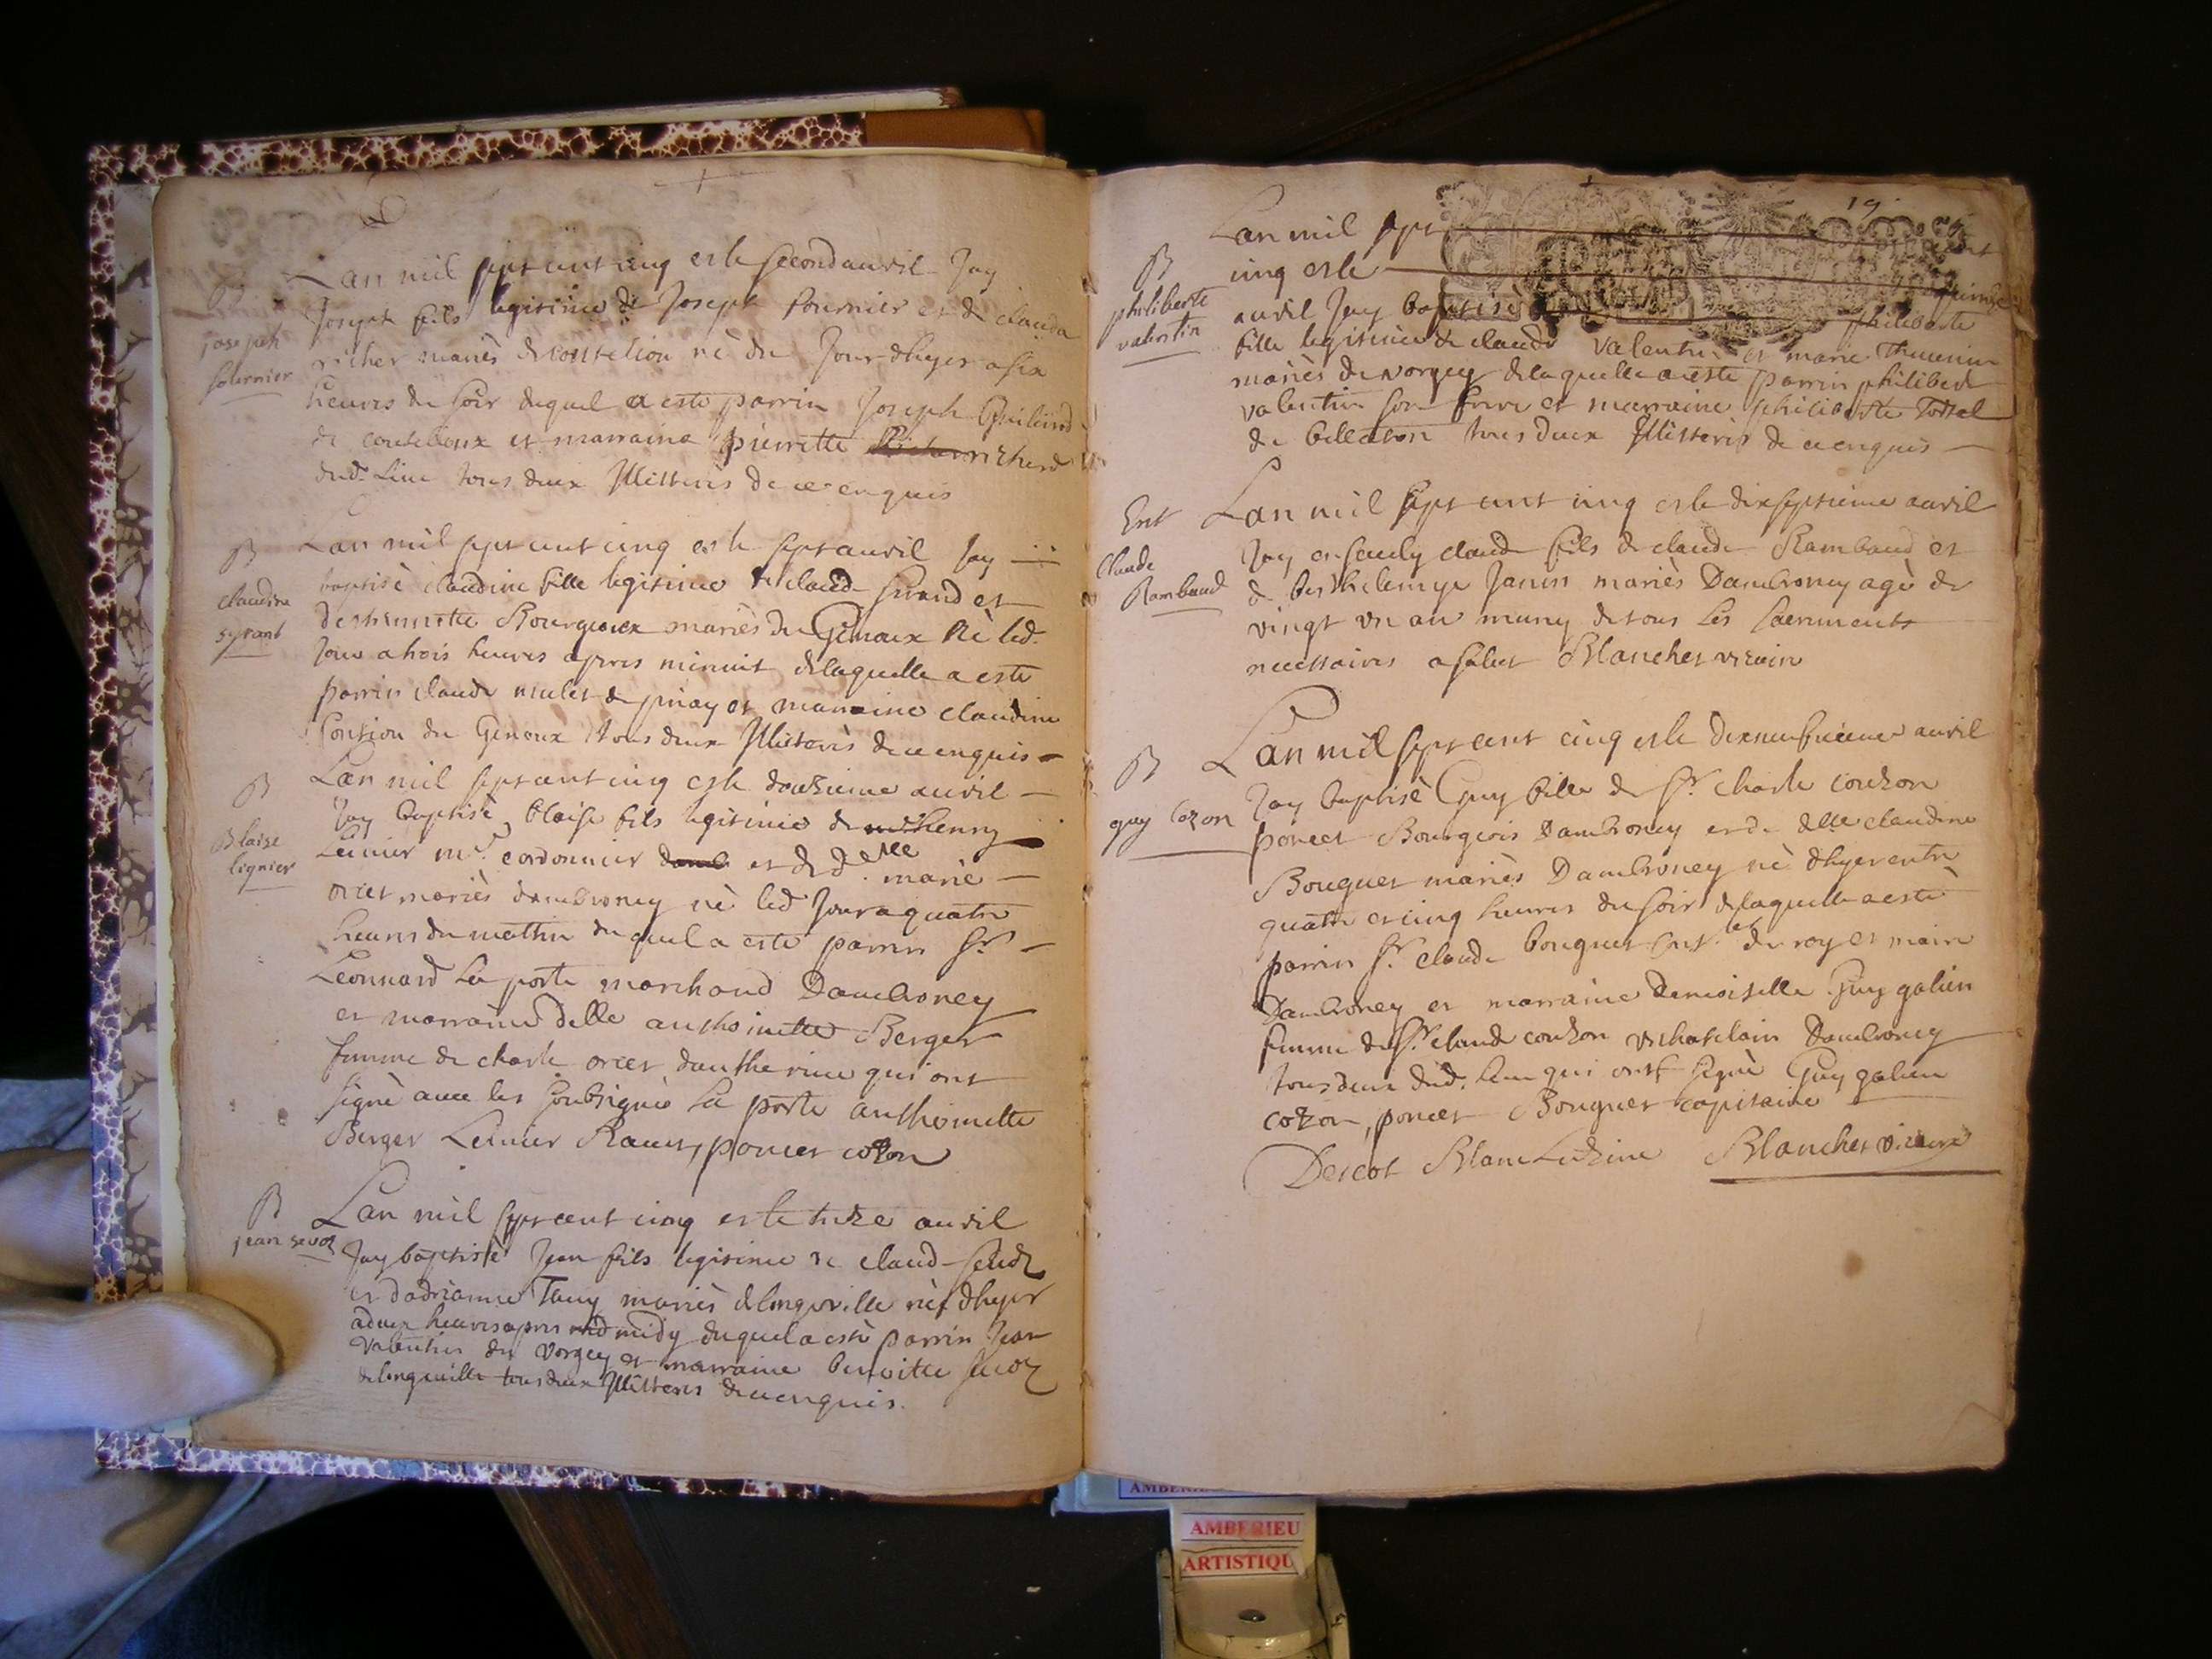 B
joseph
fournier
Lan mil sept cent cinq et le second auril Jay
Joseph fils legitime de Joseph fournier et de clauda
richer mariés de cousteliou né du Jour dhyer a six
heures du soir duquel a esté parrin Joseph
de et marraine pierrette richerd
dud. Lieu tous deux Illitterés de ce enquis
B
claudine
syrant
Lan mil sept cent cinq et le sept auril Jay
baptisé claudine fille legitime de claud Sirand et
desthiennette Bourgeois mariés du Genoux Né led.
Jour a trois heures apres minuit de laquelle a esté
parrin claude mulet de priay et marraine claudine
du Genoux tous deux Illiterés de ce enquis
B
Blaise
lignier
Lan mil sept cent cinq et le douzieme auril
Jay baptisé blaise fils legitime de henry
Leinier mr. cordonnier et de delle marie
orcet mariés dambroney né led Jour a quatre
heures du mattin duquel a esté parrin Sr.
Leonnard La porte marchand Dambroney
et marraine delle anthoinette Berger
femme de charle orcet dautherine qui ont
signé auec les soubsignés La porte anthoinette
Berger Leinier Racet, poncet cozon
B
jean sevoz
Lan mil sept cent cinq et le treze auril
Jay baptisé Jean fils legitime de claud Seuoz
et dadrianne Tauy mariés de longeville né dhyer
a deux heures apres mid midy duquel a esté parrin Jean
Valentin du Vorgey et marraine benoitte Seuoz
de longeuille tous deux Illitterés de ce enquis.
19.
B
philiberte
valentin
Lan mil sept cent
cinq et le quinze
auril Jay baptisé philiberte
fille legitime de claude Valentin et marie Thuenin
mariés de Vorgey de laquelle a esté parrin philibert
valentin son frere et marraine philiberte Tottel
de bellaton tous deux Illitterés de ce enquis
Ent
Claude
Rambaud
Lan mil sept cent cinq et le dix septieme auril
Jay enseuely claude fils de claude Rambaud et
de berthelemye Janin mariés Dambroney agé de
vingt un an muny de tous Les sacrements
necessaires a salut Blanchet vicaire
B
guy cozon
Lan mil sept cent cinq et le dixneufuieme auril
Jay baptisé Guy fille de Sr. charle couzon
poncet Bourgeois Dambroney et de delle claudine
Bouguet mariés Dambroney né dhyer entre
quatre et cinq heures du soir de laquelle a esté
parrin Sr. claude bouguet conser du roy et maire
Dambroney et marraine Demoiselle Guy galien
femme du Sr. claude couzon vichatelain Dambroney
tous deux dud. Lieu qui ont signé Guy galien
cozon, poncet Bouguet capitaine
Descot Blanchet vicaire
AMBERIEU
ARTISTIQU